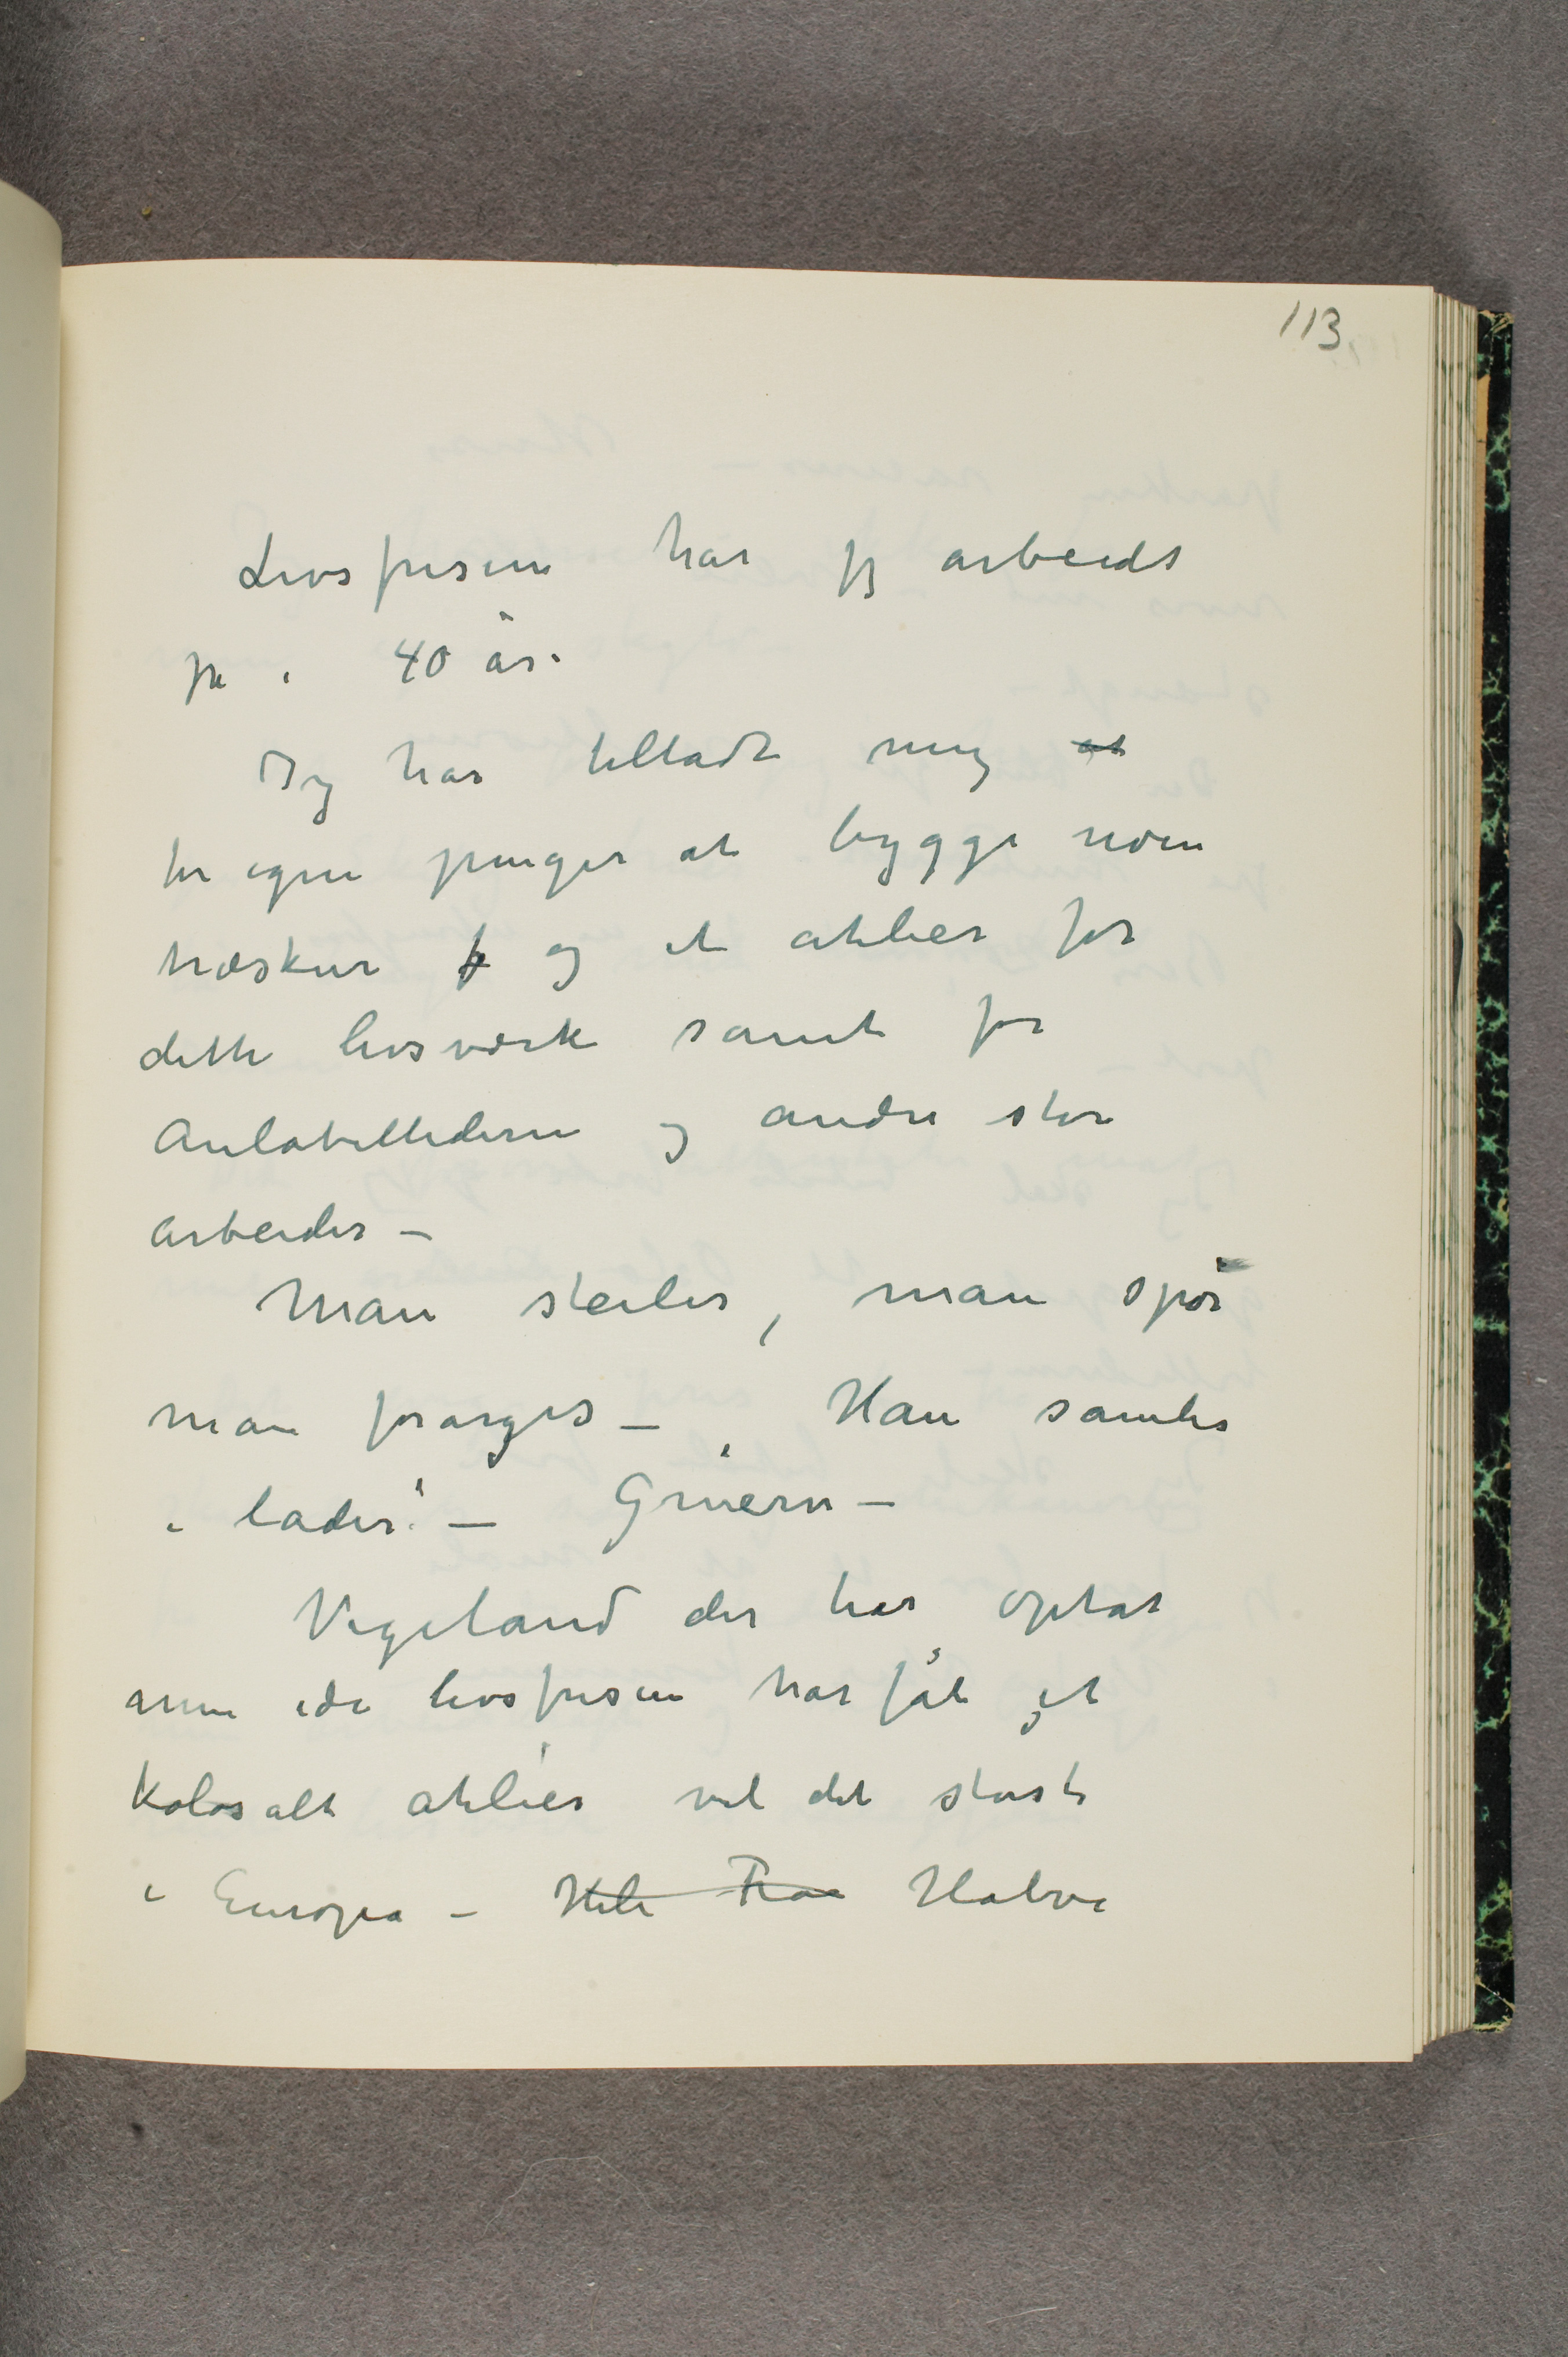 113
Livsfrisen har jeg arbeidt
på i 40 år.
Jeg har tilladt mig at
for egne penger at bygge noen
træskur f og et atelier for
dette livsværk samt for
Aulabillederne og andre store
arbeider –
Man steiler, man spør
man forarges – „Han samler
i lader" – Gnieren –
Vigeland der har optat
min ide livsfrisen har fåt et
kolosalt atelier vel det største
i Europa – Hele Fra Halve